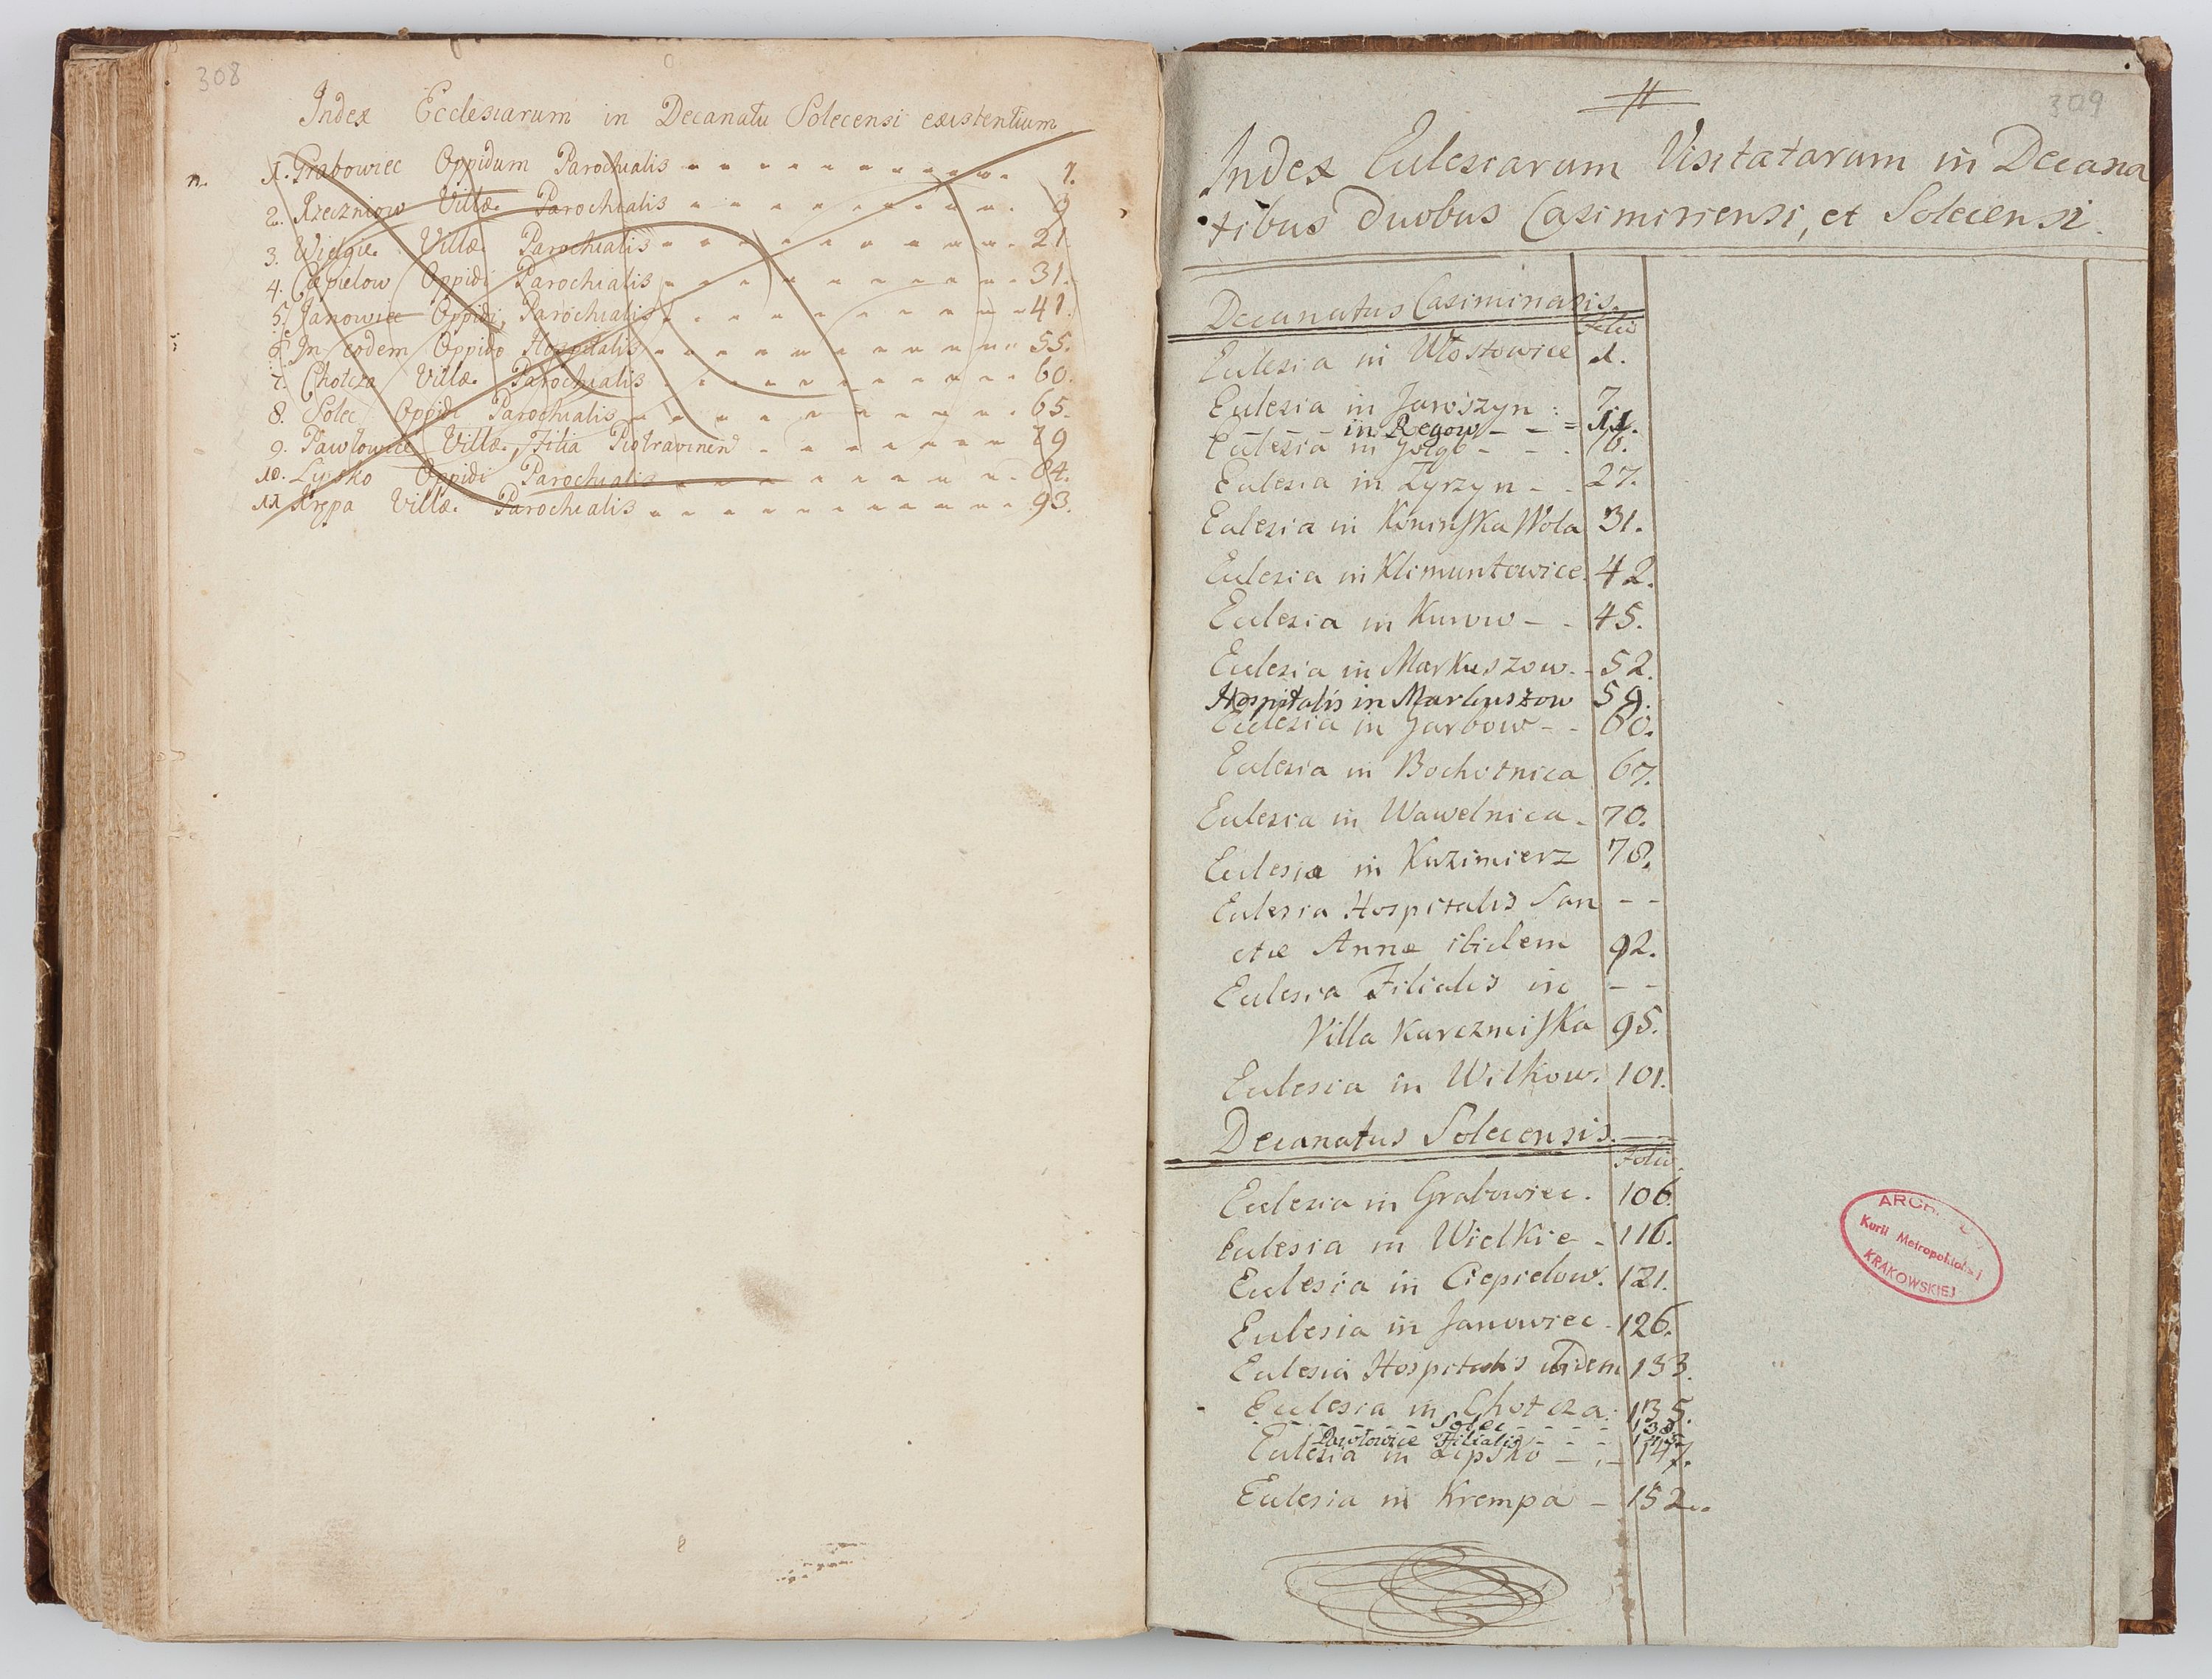 308
Index Ecclesiarum in Decanatu Solecensi existentium
n. 1. Grabowiec Oppidum Parochialis 1.
2. Rzeczniow Villæ Parochialis 9
3. Wielgie Villæ Parochialis 21.
4. Ciepielow Oppidi Parochialis 31.
5. Janowiec Oppidi, Parochialis 41.
6. In eodem Oppido Hospitalis 55.
7. Chotcza Villæ Parochialis 60.
8. Solec Oppidi Parochialis 65.
9. Pawłowice Villæ, Filia Piotravinen
10. Lipsko Oppidi Parochialis 84.
11 Krępa Villæ Parochialis 93.
309
Index Eulesiarum Visitatarum in Decana
tibus duobus Casimiriensi, et Solecensi.
Decanatus Casimiriensis.
Folio
Eulesia in Włostowice 1.
Eulesia in Jaroszyn 7.
in Regow 11.
Eulesia in Gołąb
Eulesia in Zyrzyn 27.
Eulesia in KoninsKa Wola 31.
Eulesia in Klimuntowice 42.
Eulesia in Kurow 45.
Eulesia in MarKuszow 52.
Hospitalis in Markuszow 59.
Eulesia in Garbow 60.
Eulesia in Bochotnica 67.
Eulesia in Wawelnica 70.
Eulesia in Kazimierz 78.
Eulesia Hospitalis San
ctæ Annæ ibidem 92.
Eulesia Filialis in
Villa KarczmisKa 95.
Eulesia in Wilkow. 101.
Decanatus Solecensis.
Folio.
Eulesia in Grabowiec. 106.
Eulesia in Wielkie 116.
Eulesia in Ciepielow. 121.
Eulesia in Janowiec 126.
Eulesia Hospitalis ibidem 133.
Eulesia in Chotcza 135.
Solec 138.
Pawłowice Filialis
Eulesia in Lipsko 147.
Eulesia in Krempa 152.
ARCHIWUM
Kurii Metropolitalnej
KRAKOWSKIEJ